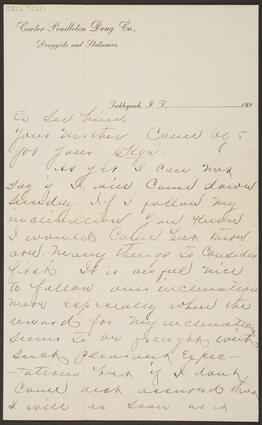 Carter-Pendleton Drug Co.,
Druggists and Stationers.
Tahlequah, I. T., 189
to see him.
Your Mother came by &
got your
As yet I can not
say if I will come down
Sunday. If I follow my
inclination you know
I would come but there
are many things to consider
first. It is awful nice
to follow ones inclination
more especially when the
reward for my inclination
seems to be fraught with
such pleasant expec-
-tations but if I dont
come rest assured that
I will as soon as it